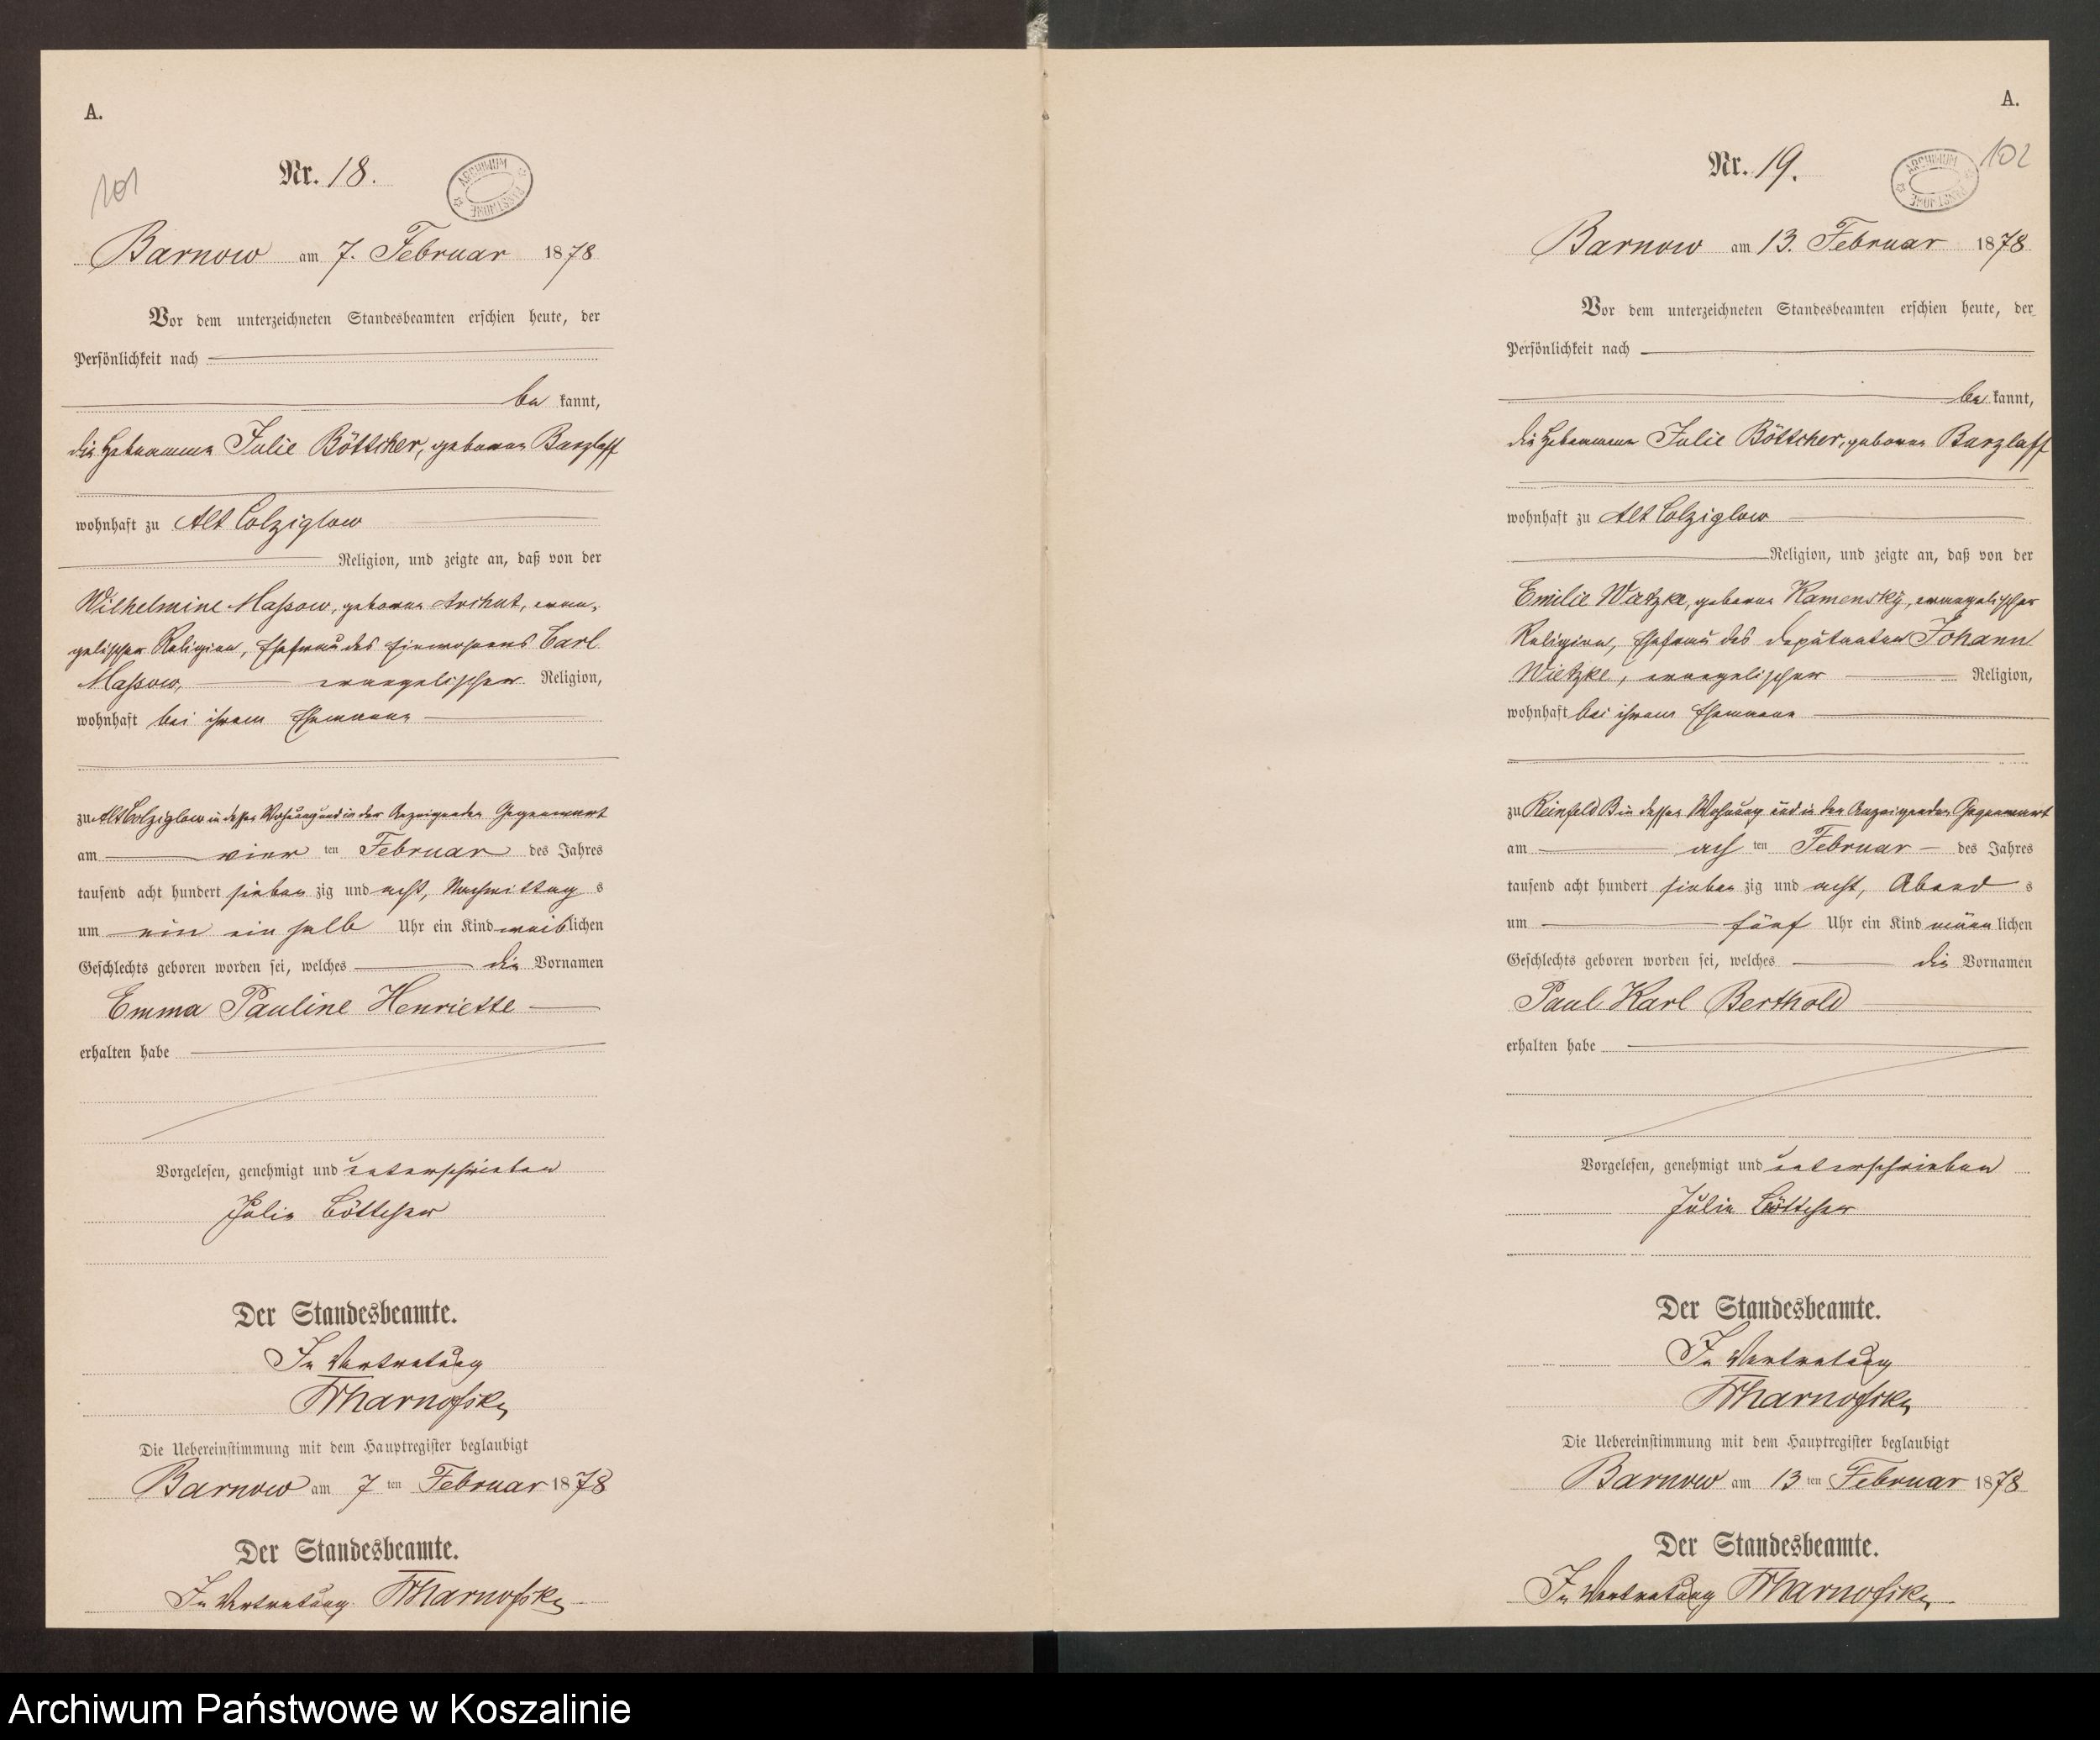 A.
101
Nr. 18.
ARCHIWUM PAŃSTWOWE
Barnow am 7. Februar 1878
Vor dem unterzeichneten Standesbeamten erschien heute, der
Persönlichkeit nach
be kannt,
die Hebamme Julie Böttcher, geborne Barzlaff
wohnhaft zu Alt Colziglow
Religion, und zeigte an, daß von der
Wilhelmine Massow, geborne evan-
gelischer Religion, Ehefrau des Einwohners Carl
Massow, evangelischer Religion,
wohnhaft bei ihrem Ehemanne
zu Alt Colziglow in dessen Wohnung und in der Anzeigenden Gegenwart
am vier ten Februar des Jahres
tausend acht hundert sieben zig und acht, Nachmittag s
um ein ein halb Uhr ein Kind weiblichen
Geschlechts geboren worden sei, welches die Vornamen
Emma Pauline Henriette
erhalten habe
Vorgelesen, genehmigt und unterschrieben
Julie Böttcher
Der Standesbeamte.
In Vertretung
Die Uebereinstimmung mit dem Hauptregister beglaubigt
Barnow am 7 ten Februar 1878
Der Standesbeamte.
In Vertretung
A.
102
Nr. 19.
ARCHIWUM PAŃSTWOWE
Barnow am 13. Februar 1878
Vor dem unterzeichneten Standesbeamten erschien heute, der
Persönlichkeit nach
be kannt,
die Hebamme Julie Böttcher, geborne Barzlaff
wohnhaft zu Alt Colziglow
Religion, und zeigte an, daß von der
Emilie Wietzke, geborne Kamensky, evangelischer
Religion, Ehefrau des Deputanten Johann
Wietzke, evangelischer Religion,
wohnhaft bei ihrem Ehemanne
zu Reinfeld B in dessen Wohnung und in der Anzeigenden Gegenwart
am ach ten Februar des Jahres
tausend acht hundert sieben zig und acht, Abend s
um fünf Uhr ein Kind männ lichen
Geschlechts geboren worden sei, welches die Vornamen
Paul Karl Berthold
erhalten habe
Vorgelesen, genehmigt und unterschrieben
Julie Böttcher
Der Standesbeamte.
In Vertretung
Die Uebereinstimmung mit dem Hauptregister beglaubigt
Barnow am 13 ten Februar 1878
Der Standesbeamte.
In Vertretung
Archiwum Państwowe w Koszalinie